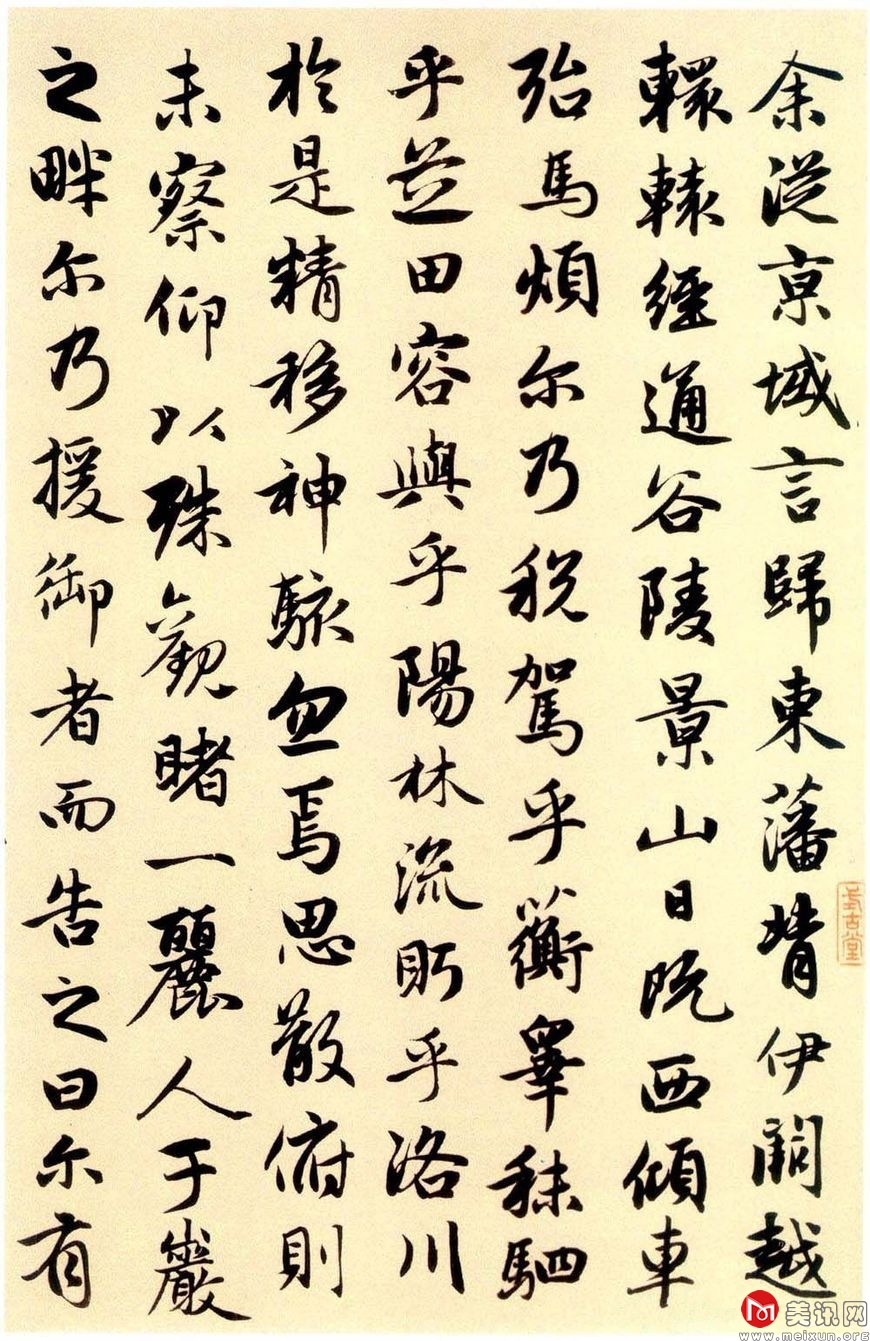 余從京域言歸東藩背伊闕越
轘轅經通谷陵景山日既西傾車
殆馬煩尔乃稅駕乎蘅皋秣駟
乎芝田容與乎陽林流眄乎洛川
於是精移神駭忽焉思散俯則
未察仰以殊觀睹一麗人于巖
之畔尔乃援御者而告之曰尔有
式古堂
美讯网
www.meixun.org